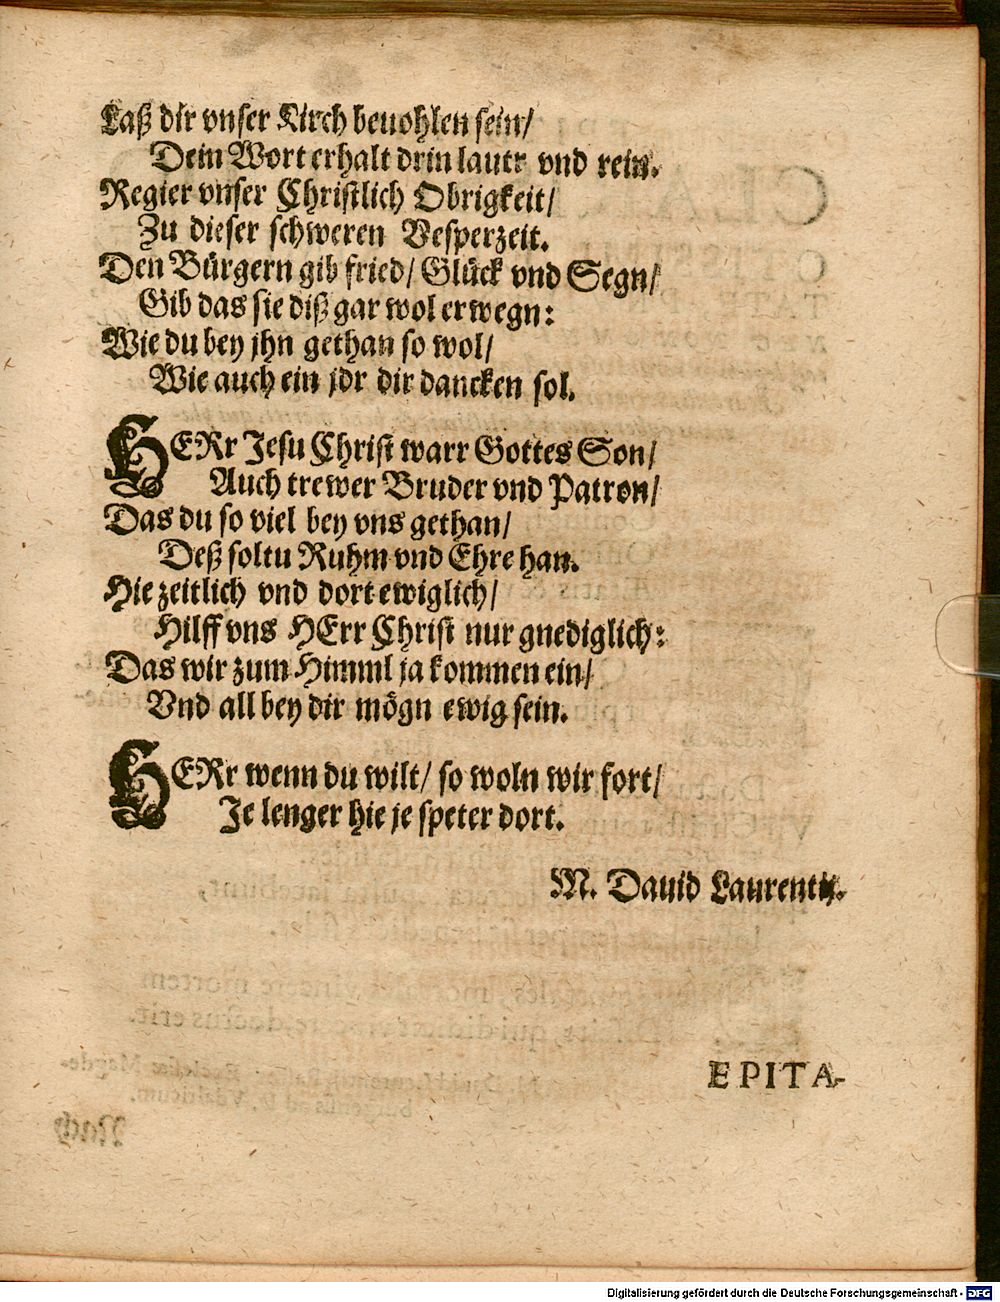 Laß dir vnser Kirch beuohlen sein/
Dein Wort erhalt drin lautr vnd rein.
Regier vnser Christlich Obrigkeit/
Zu dieser schweren Vesperzeit.
Den Bürgern gib fried/ Glück vnd Segn/
Gib das sie diß gar wol erwegn:
Wie du bey jhn gethan so wol/
Wie auch ein jdr dir dancken sol.
HERr Jesu Christ warr Gottes Son/
Auch trewer Bruder vnd Patron/
Das du so viel bey vns gethan/
Deß soltu Ruhm vnd Ehre han.
Hie zeitlich vnd dort ewiglich/
Hilff vns HErr Christ nur gnediglich:
Das wir zum Himml ja kommen ein/
Vnd all bey dir mögn ewig sein.
HERr wenn du wilt/ so woln wir fort/
Je lenger hie je speter dort.
M. Dauid Laurentij.
EPITA-
Digitalisierung gefördert durch die Deutsche Forschungsgemeinschaft - DFG